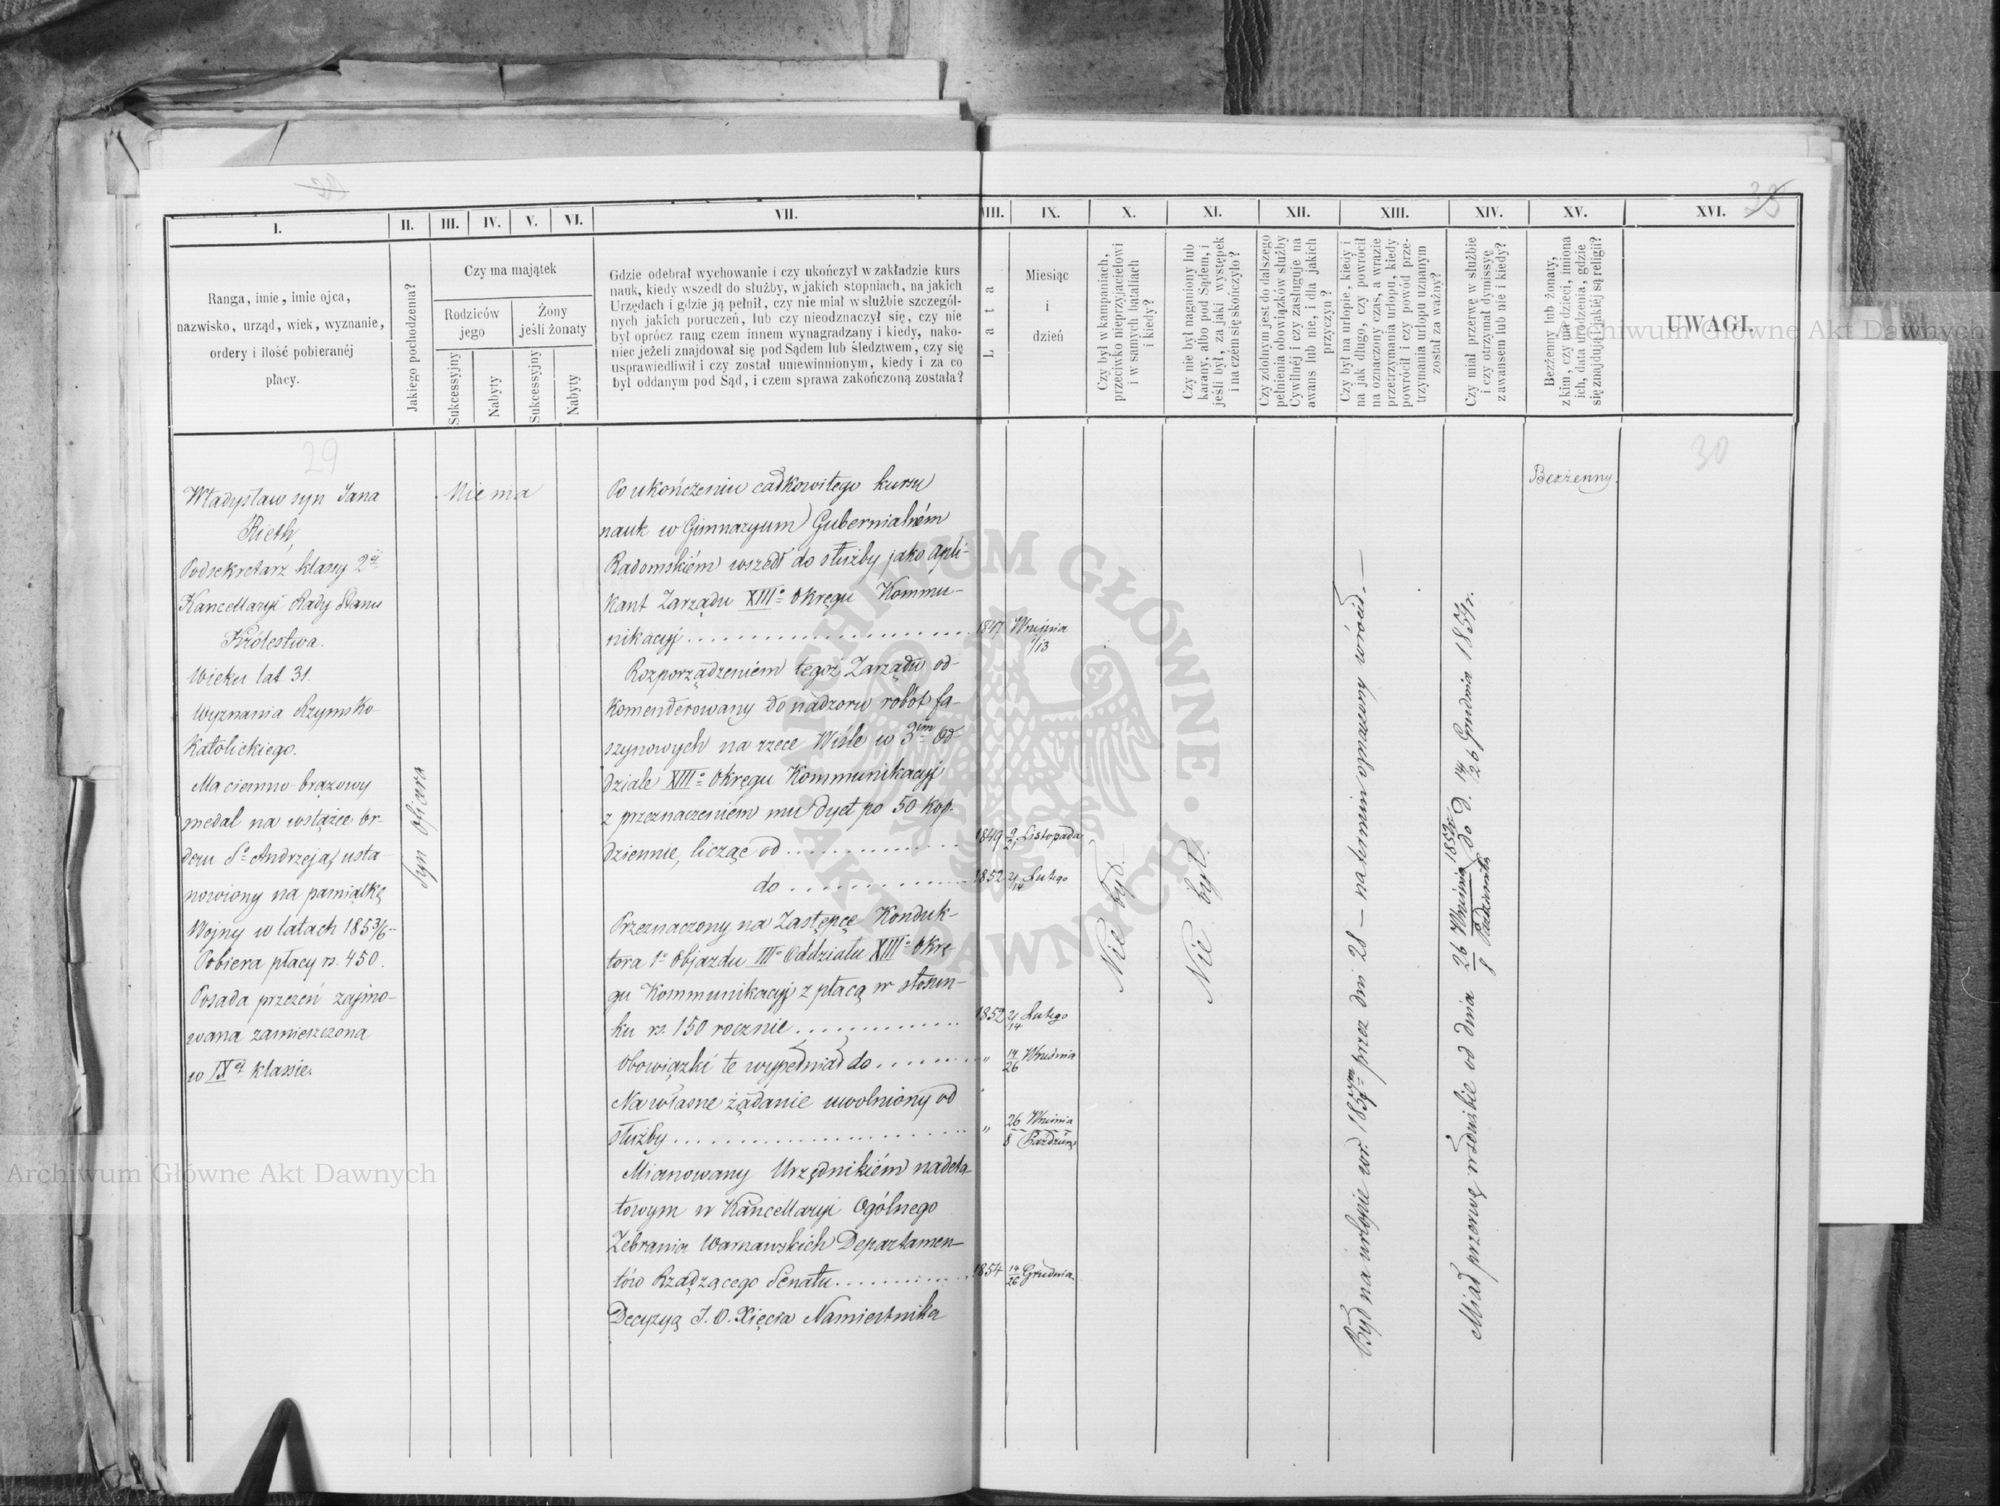 I.
II.
III.
IV.
V.
VI.
VII.
VIII.
IX.
X.
XI.
XII.
XIII.
XIV.
XV.
XVI.
Ranga, imie, imie ojca,
nazwisko, urząd, wiek, wyznanie,
ordery i ilość pobieranéj
płacy.
Jakiego pochodzenia?
Czy ma majątek
Rodziców
jego
Żony
jeśli żonaty
Sukcessyjny
Nabyty
Sukcessyjny
Nabyty
Gdzie odebrał wychowanie i czy ukończył w zakładzie kurs
nauk, kiedy wszedł do służby, w jakich stopniach, na jakich
Urzędach i gdzie ją pełnił, czy nie miał w służbie szczegól-
nych jakich poruczeń, lub czy nieodznaczył się, czy nie
był oprócz rang czem innem wynagradzany i kiedy, nako-
niec jeżeli znajdował się pod Sądem lub śledztwem, czy się
usprawiedliwił i czy został uniewinnionym, kiedy i za co
był oddanym pod Sąd, i czem sprawa zakończoną została?
Lata
Miesiąc
i
dzień
Czy był w kampaniach,
przeciwko nieprzyjacielowi
i w samych batalіach
i kiedy?
Czy nie był naganiony lub
karany, albo pod Sądem, i
jeśli był, za jaki występek
i na czem się skończyło?
Czy zdolnym jest do dalszego
pełnienia obowiązków służby
Cywilnéj i czy zasługuje na
awans lub nie, i dla jakich
przyczyn?
Czy był na urlopie, kiedy i
na jak długo, czy powrócił
na oznaczony czas, a wrazie
przetrzymania urlopu, kiedy
powrócił i czy powód prze-
trzymania urlopu uznanym
został za ważny?
Czy miał przerwę w służbie
i czy otrzymał dymissyę
z awansem lub nie i kiedy?
Bezżenny, lub żonaty,
z kim, czy ma dzieci, imiona
ich, data urodzenia, gdzie
się znajdują i jakiéj są religii?
UWAGI.
29
30
Władysław syn Jana
Rieth
Podsekretarz klassy 2éj
Kancellaryi Rady Stanu
Królestwa.
Wieku lat 31.
Wyznania Rzymsko-
Katolickiego.
Ma ciemno-brązowy
medal na wstążce or-
deru Sgo Andrzeja, usta-
nowiony na pamiątkę
Wojny w latach 1853/6-
Pobiera płacy rs. 450.
Posada przezeń zajmo-
wana zamieszczona
w IXej klassie.
Syn oficera
Nie ma
Po ukończeniu całkowitego kursu
nauk w Gimnazyum Gubernialném
Radomskiém wszedł do służby jako apli-
kant Zarządu XIIIo Okręgu Kommu-
nikacyj
1847 Września 1/13
Rozporządzeniem tegoż Zarządu od-
komenderowany do nadzoru robót fa-
szynowych na rzece Wiśle w 3im Od-
dziale XIIIo Okręgu Kommunikacyj
z przeznaczeniém mu dyet po 50 kop.
dziennie, licząc od
1849 9/21 Listopada
do
1852 2/14 Lutego
Przeznaczony na Zastępcę Konduk-
tora 1o Objazdu IIIo Oddziału XIIIo Okrę-
gu Kommunikacyj z płacą w stosun-
ku rs. 150 rocznie
1852 2/14 Lutego
Obowiązki te wypełniał do
" 14/26 Września
Na własne żądanie uwolniony od
służby
" 26 Września / 8 Paździer.
Mianowany Urzędnikiém nadeta-
towym w Kancellaryi Ogólnego
Zebrania Warszawskich Departamen-
tów Rządzącego Senatu
1854 14/26 Grudnia
Decyzyą J. O. Xięcia Namiestnika
Nie był.
Nie był.
Był na urlopie w r. 1857ym przez dni 28 — na termin oznaczony wrócił. —
Miał przerwę w służbie od dnia 26 Września / 8 Paździer. 1852 r. do d. 14/26 Grudnia 1854 r.
Bezżenny.
ARCHIWUM GŁÓWNE AKT DAWNYCH
Archiwum Główne Akt Dawnych
Archiwum Główne Akt Dawnych